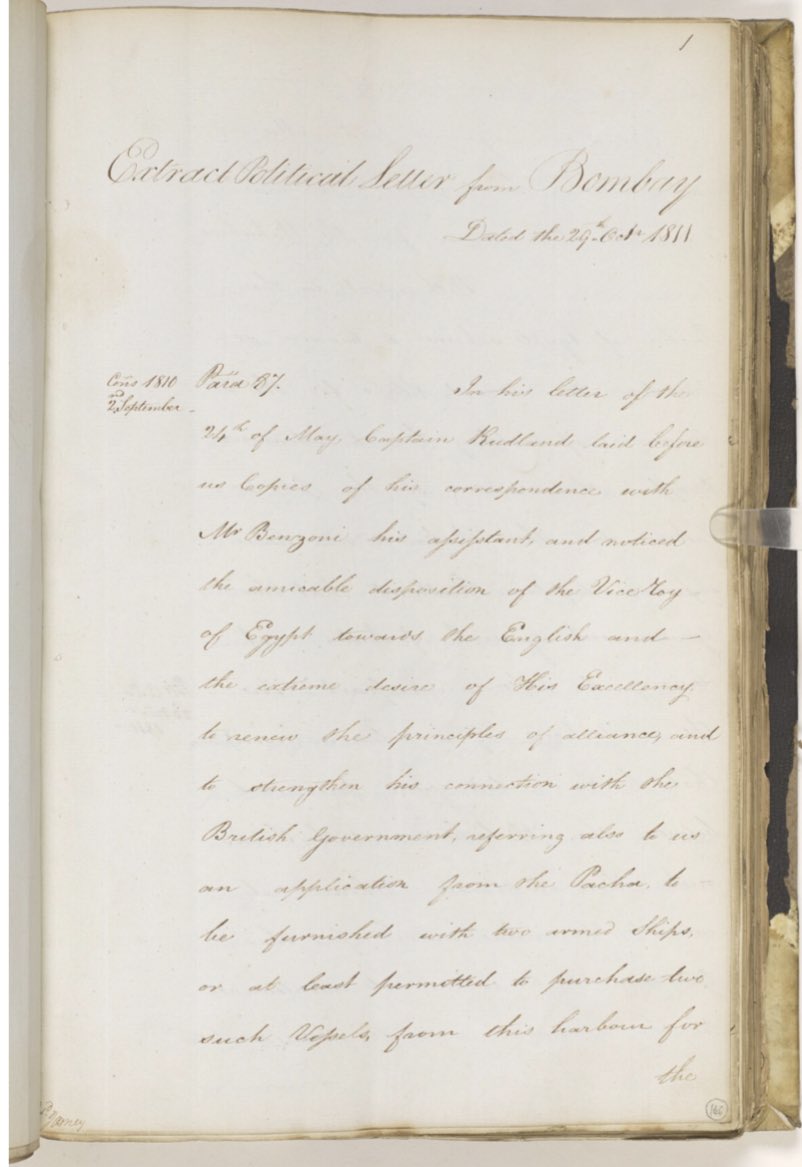 1
Extract Political Letter from Bombay
Dated the 29th Octr 1811
Cons 1810
2d September
Para 37.
In his letter of the
24th of May, Captain Rudland laid before
us Copies of his correspondence with
Mr Benzoni his assistant, and noticed
the amicable disposition of the Vice Roy
of Egypt towards the English and –
the extreme desire of His Excellency
to renew the principles of alliance, and
to strengthen his connection with the
British Government, referring also to us
an application from the Pacha, to
be furnished with two armed Ships,
or at least permitted to purchase two
such Vessels, from this harbour for
the
166